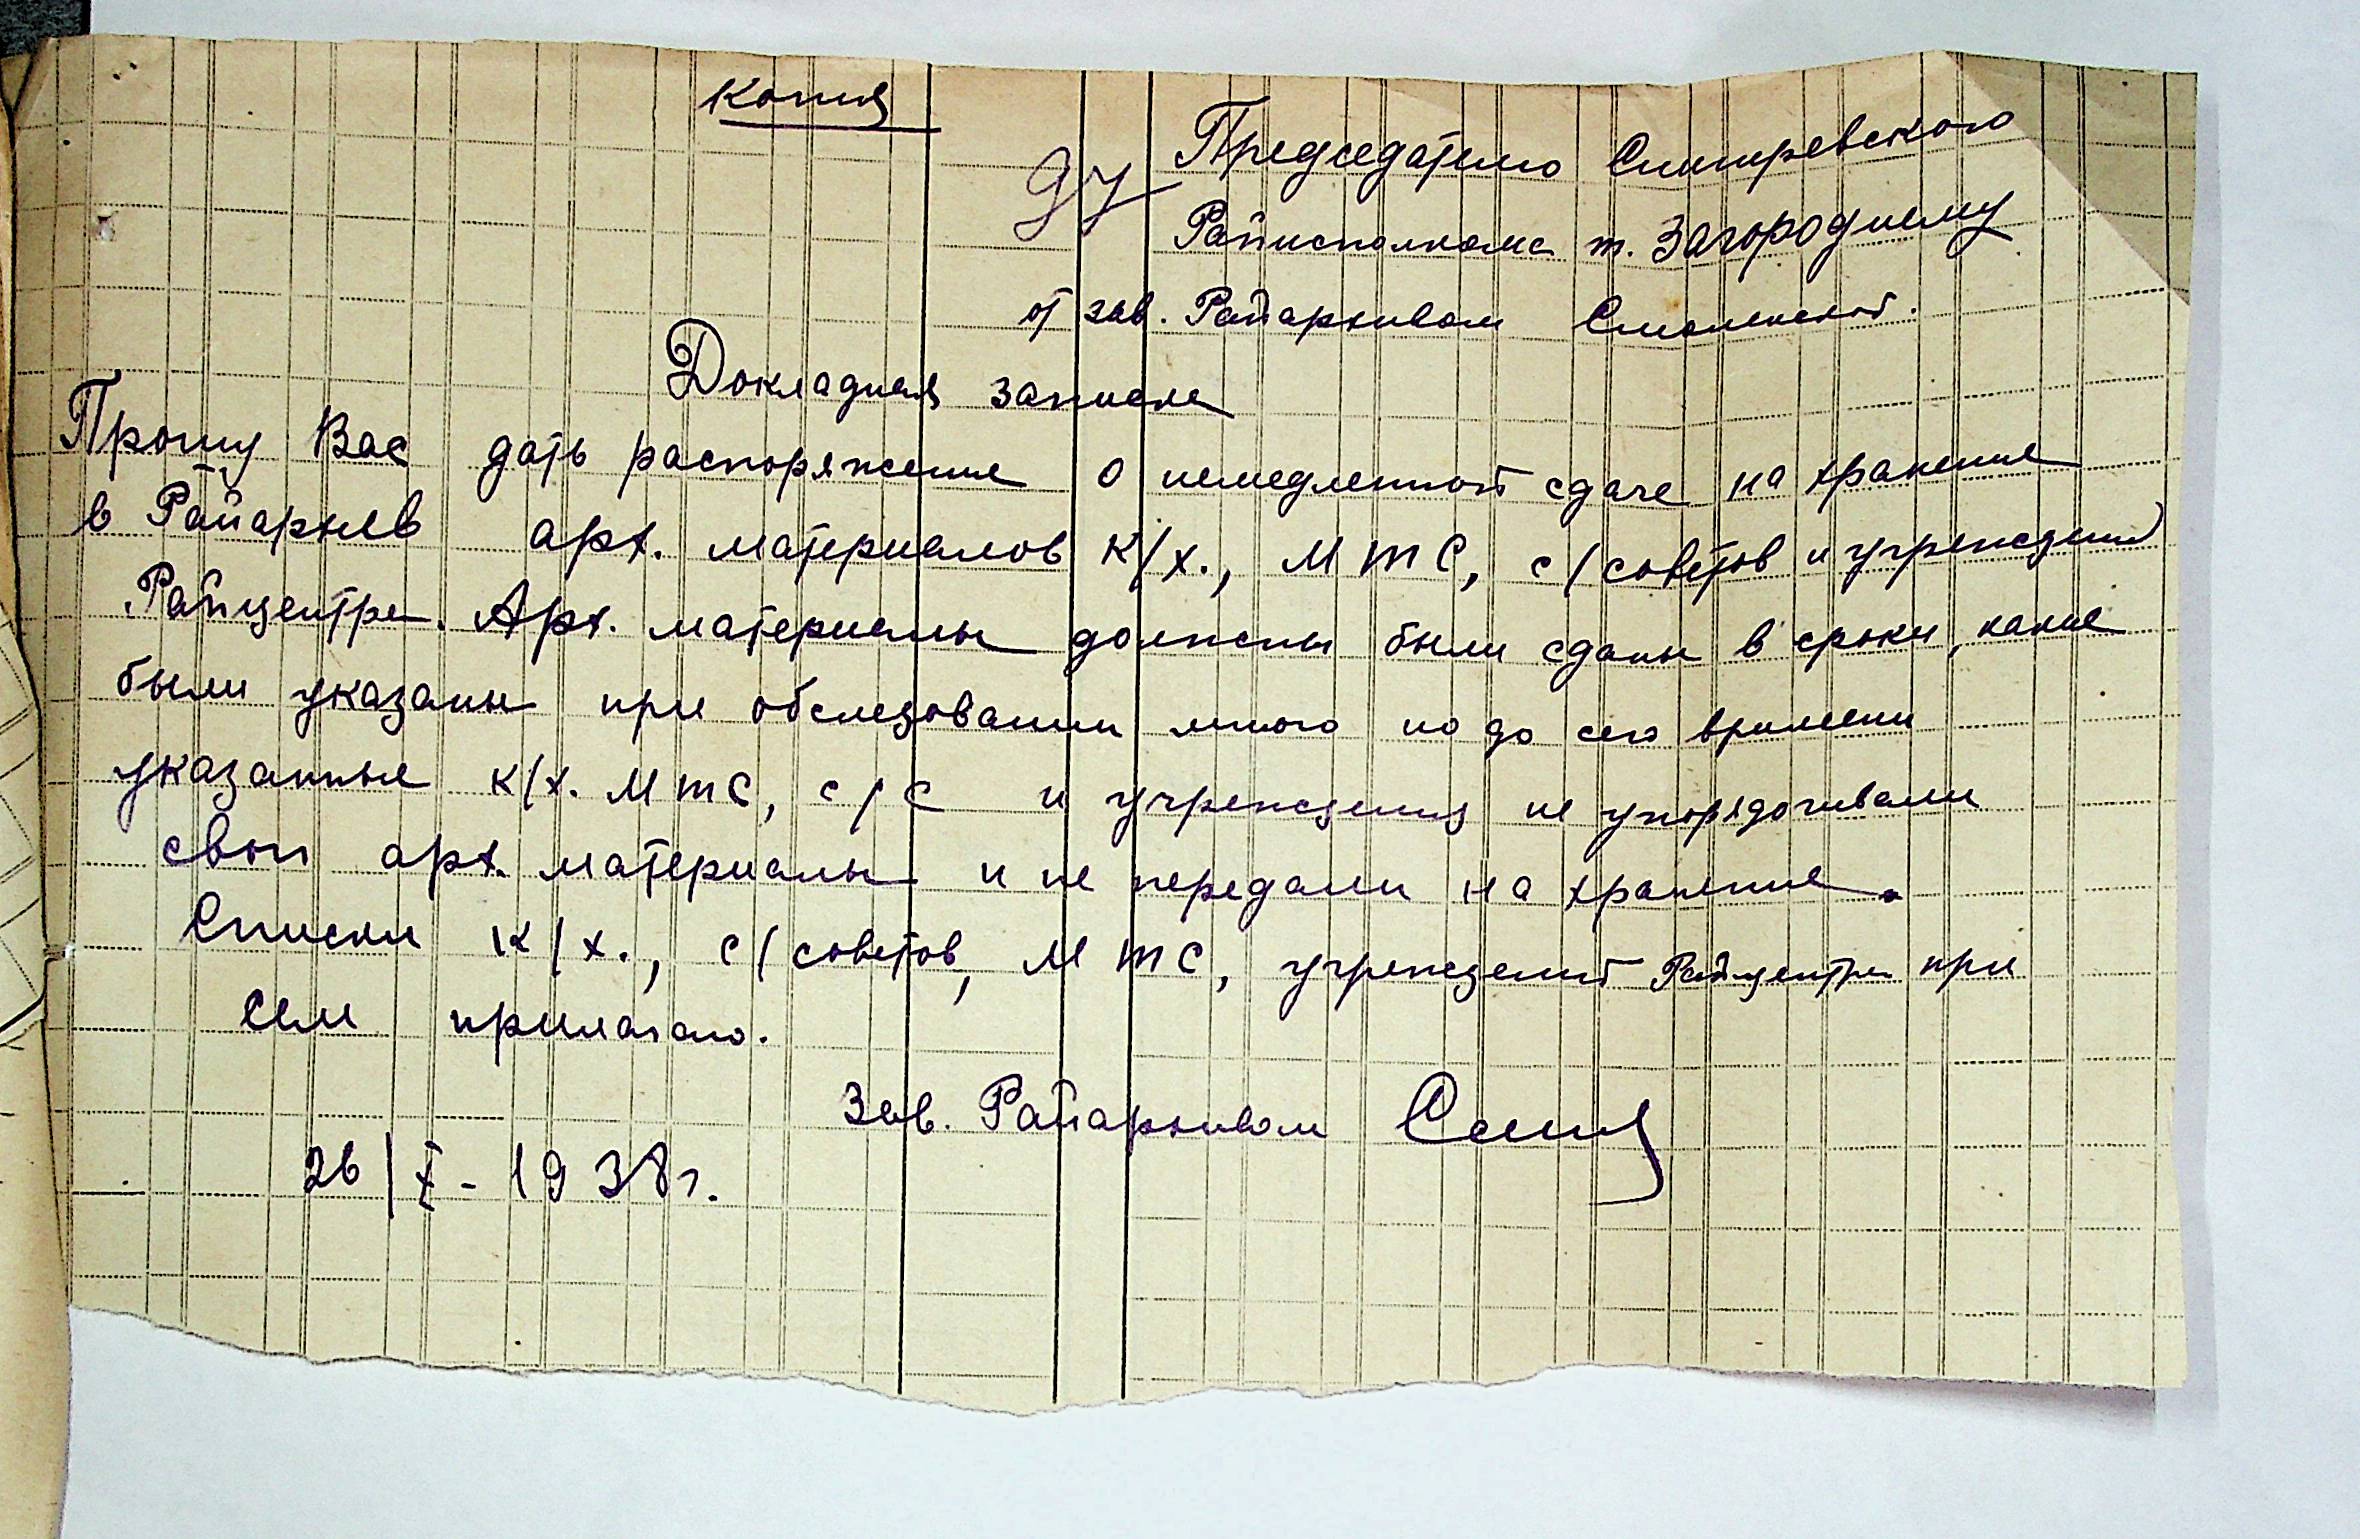 Копия
97 Председателю Снигиревского
Райисполкома т. Загороднему
от зав. Райархивом Смоленской.
Докладная записка
Прошу Вас дать распоряжение о немедленной сдаче на хранение
в Райархив арх. материалов к/х., МТС, с/советов и учреждений
Райцентра. Арх. материалы должны были сданы в сроки, какие
были указаны при обследовании мною но до сего времени
указанные к/х. МТС, с/с и учреждения не упорядочивали
свои арх. материалы и не передали на хранение.
Списки к/х., с/советов, МТС, учреждений Райцентра при
сем прилагаю.
Зав. Райархивом
26/X-1938г.